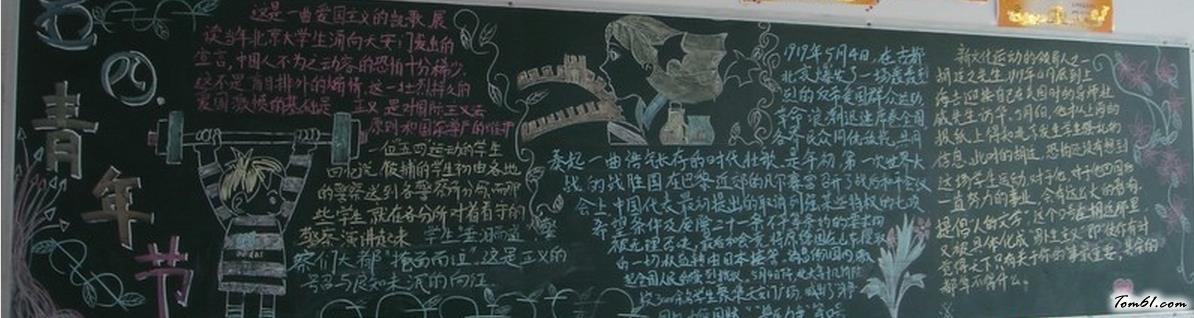 五四青年节
这是一曲爱国主义的凯歌,展
读当年北京大学生涌向天安门发出的
宣言,中国人不为之动容的恐怕十分稀少。
这不是盲目排外的煽情,这一壮烈择义的
爱国激愤的基础是 正义,是对国际正义法
原则和国家尊严的维护
一位五四运动的学生
回忆说,像捕的学生初由各地
的警察送到各警察所分命,而那
些学生就在各分所对着看守的
警察演讲起来 学生"垂泪而道,警
察们大都"掩面而泣"这是正义的
号召与良知未泯的向往
1919年5月4日,在古都
北京爆发了一场轰轰烈
烈的反帝爱国群众运动,
革命浪潮迅速席卷全国,
各界民众同仇敌忾,共同
奏起一曲浩气长存的时代壮歌,是年初,第一次世界大
战的战胜国在巴黎近郊的凡尔赛宫召开了战后和平会议
会上,中国代表最初提出的取消列强某些特权的七项
希望条件及废除二十一条不平等条约的要求
被无理否决,最后和会竟将原德国在山东攫取
的一切权益转由日本接管,消息传回国内,激
起全国人民的强烈抗议,5月4日下午,北大等十几所院
校3000余名学生聚集天安门广场,
新文化运动的领导人之一
胡适之先生,1919年4月底到上
海去迎接自己在美国时的导师杜
威先生访华,5月6日,他和上海的
报纸上得知北京发生学生骚乱的
信息,此时的胡适,恐怕还没有想到
这场学生运动,对于他、对于他回国后
一直努力的事业,会有这么大的影响。
是"属人的文学"这个口号在胡适那里
又被具体化成"易卜生主义"即"使你有时
觉得天下只有关于你的事最要紧,其余的
都算不得什么。"
Tom61.com